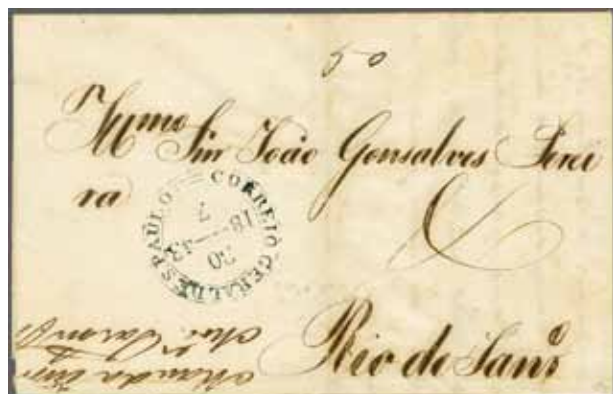 50
Illmo Snr João Gonsalves Perei
ra
CORREIO GERAL DE S PAULO
20
18 43
7
Rio de Janro